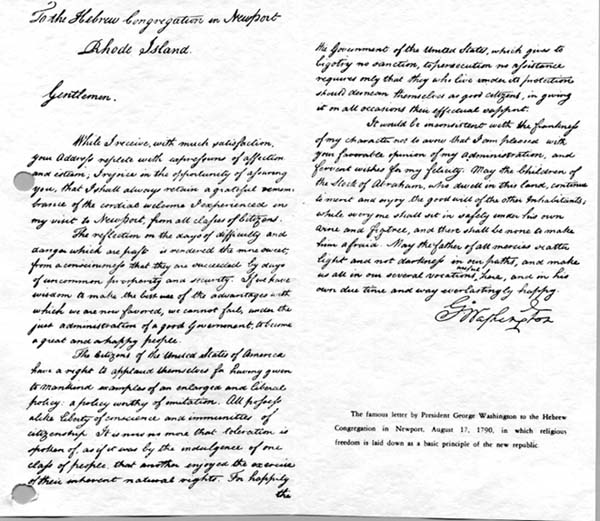 To the Hebrew Congregation in Newport
Rhode Island.
Gentlemen.
While I receive, with much satisfaction,
your Address replete with expressions of affection
and esteem; I rejoice in the opportunity of assuring
you, that I shall always retain a grateful remem-
brance of the cordial welcome I experienced in
my visit to Newport, from all classes of Citizens.
The reflection on the days of difficulty and
danger which are past is rendered the more sweet,
from a consciousness that they are succeeded by days
of uncommon prosperity and security. If we have
wisdom to make the best use of the advantages with
which we are now favored, we cannot fail, under the
just administration of a good Government, to become
a great and a happy people.
The Citizens of the United States of America
have a right to applaud themselves for having given
to mankind examples of an enlarged and liberal
policy: a policy worthy of imitation. All possess
alike liberty of conscience and immunities of
citizenship It is now no more that toleration is
spoken of, as if it was by the indulgence of one
class of people, that another enjoyed the exercise
of their inherent natural rights. For happily
the
the Government of the United States, which gives to
bigotry no sanction, to persecution no assistance
requires only that they who live under its protection
should demean themselves as good citizens, in giving
it on all occasions their effectual support.
It would be inconsistent with the frankness
of my character not to avow that I am pleased with
your favorable opinion of my Administration, and
fervent wishes for my felicity. May the Children of
the Stock of Abraham, who dwell in this land, continue
to merit and enjoy the good will of the other Inhabitants;
while every one shall sit in safety under his own
vine and figtree, and there shall be none to make
him afraid. May the father of all mercies scatter
light and not darkness in our paths, and make
us all in our several vocations useful here, and in his
own due time and way everlastingly happy.
G. Washington
The famous letter by President George Washington to the Hebrew
Congregation in Newport, August 17, 1790, in which religious
freedom is laid down as a basic principle of the new republic.